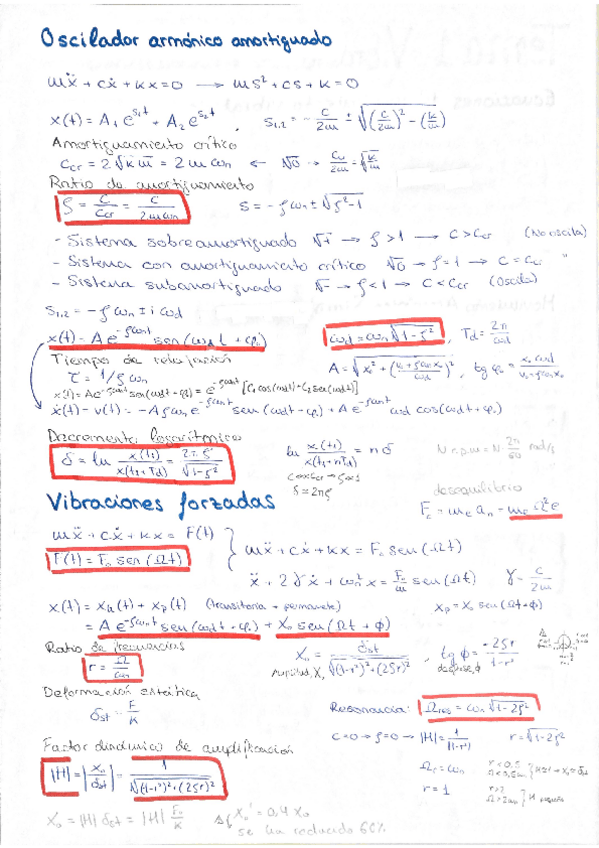 Oscilador armónico amortiguado
mẍ + cẋ + kx = 0 → ms² + cs + k = 0
x(t) = A₁ e^{s₁t} + A₂ e^{s₂t} , s₁,₂ = - c/2m ± √((c/2m)² - (k/m))
Amortiguamiento crítico
c_cr = 2√(k m) = 2mωn ← √0 →
Ratio de amortiguamiento
ζ = c/c_cr = c/2mωn s = -ζωn ± √(ζ²-1)
- Sistema sobreamortiguado √+ → ζ > 1 → c > c_cr (No oscila)
- Sistema con amortiguamiento crítico √0 → ζ = 1 → c = c_cr "
- Sistema subamortiguado √- → ζ < 1 → c < c_cr (Oscila)
s₁,₂ = -ζωn ± i ωd
x(t) = A e^{-ζωnt} sen(ωd t + φ₀) ωd = ωn √(1-ζ²) , Td = 2π/ωd
Tiempo de relajación
τ = 1/ζωn
x(t) = A e^{-ζωnt} sen(ωdt + φ₀) = e^{-ζωnt} [C₁ cos(ωdt) + C₂ sen(ωdt)]
ẋ(t) = v(t) = -Aζωn e^{-ζωnt} sen(ωdt + φ₀) + A e^{-ζωnt} ωd cos(ωdt + φ₀)
Decremento logarítmico
δ = ln x(t₁)/x(t₁+Td) = 2πζ/√(1-ζ²) ln x(t₁)/x(t₁+nTd) = nδ N r.p.m = N · 2π/60 rad/s
δ ≈ 2πζ
desequilibrio
Vibraciones forzadas F_c = m_e a_n = m_e Ω² e
mẍ + cẋ + kx = F(t)
F(t) = F₀ sen(Ωt) } mẍ + cẋ + kx = F₀ sen(Ωt)
ẍ + 2γẋ + ωn² x = F₀/m sen(Ωt) γ = c/2m
x(t) = x_h(t) + x_p(t) (transitoria + permanente) x_p = X₀ sen(Ωt+φ)
= A e^{-ζωnt} sen(ωdt + φ₀) + X₀ sen(Ωt + φ)
Ratio de frecuencias
r = Ω/ωn Amplitud, X₀ X₀ = δst/√((1-r²)²+(2ζr)²) , tg φ = -2ζr/1-r²
desfase, φ
Deformación estática
δst = F/K
Resonancia: Ωres = ωn √(1-2ζ²)
c=0 → ζ=0 → |H| = 1/|1-r²| r = √(1-2ζ²)
Factor dinámico de amplificación
|H| = |X₀/δst| = 1/√((1-r²)²+(2ζr)²) Ωr = ωn
r = 1
X₀ = |H| δst = |H| F₀/K X₀' = 0,4 X₀
se ha reducido 60%